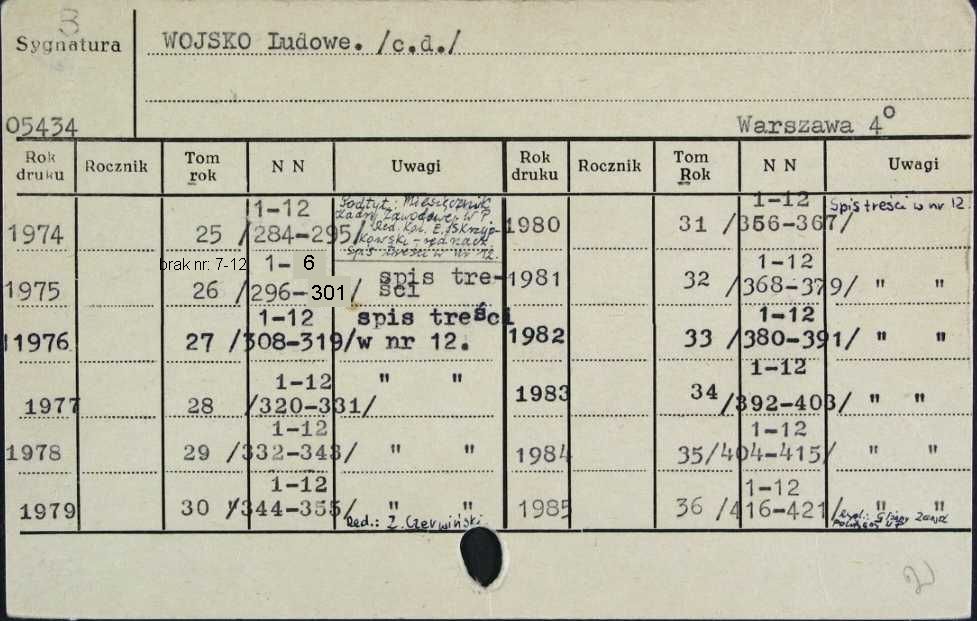 B
Sygnatura
WOJSKO Ludowe. /c.d./
05434
Warszawa 4o
Rok druku Rocznik Tom rok N N Uwagi Rok druku Rocznik Tom Rok N N Uwagi
1974 25 1-12 /284-295/ Podtyt.: Miesięcznik
Kadry Zawodowej WP
Red. E. Skrzyp-
kowski
spis treści w nr 12.
1980 31 1-12 /356-367/ Spis treści w nr 12.
brak nr. 7-12
1975 26 1- 6 /296-301/ spis tre-
ści
1981 32 1-12 /368-379/ " "
1976 27 1-12 /308-319/ spis treści
w nr 12.
1982 33 1-12 /380-391/ " "
1977 28 1-12 /320-331/ " "
1983 34 1-12 /392-403/ " "
1978 29 1-12 /332-343/ " "
1984 35 1-12 /404-415/ " "
1979 30 1-12 /344-355/ " "
Red.: Z. Czerwiński.
1985 36 1-12 /416-421/ " "